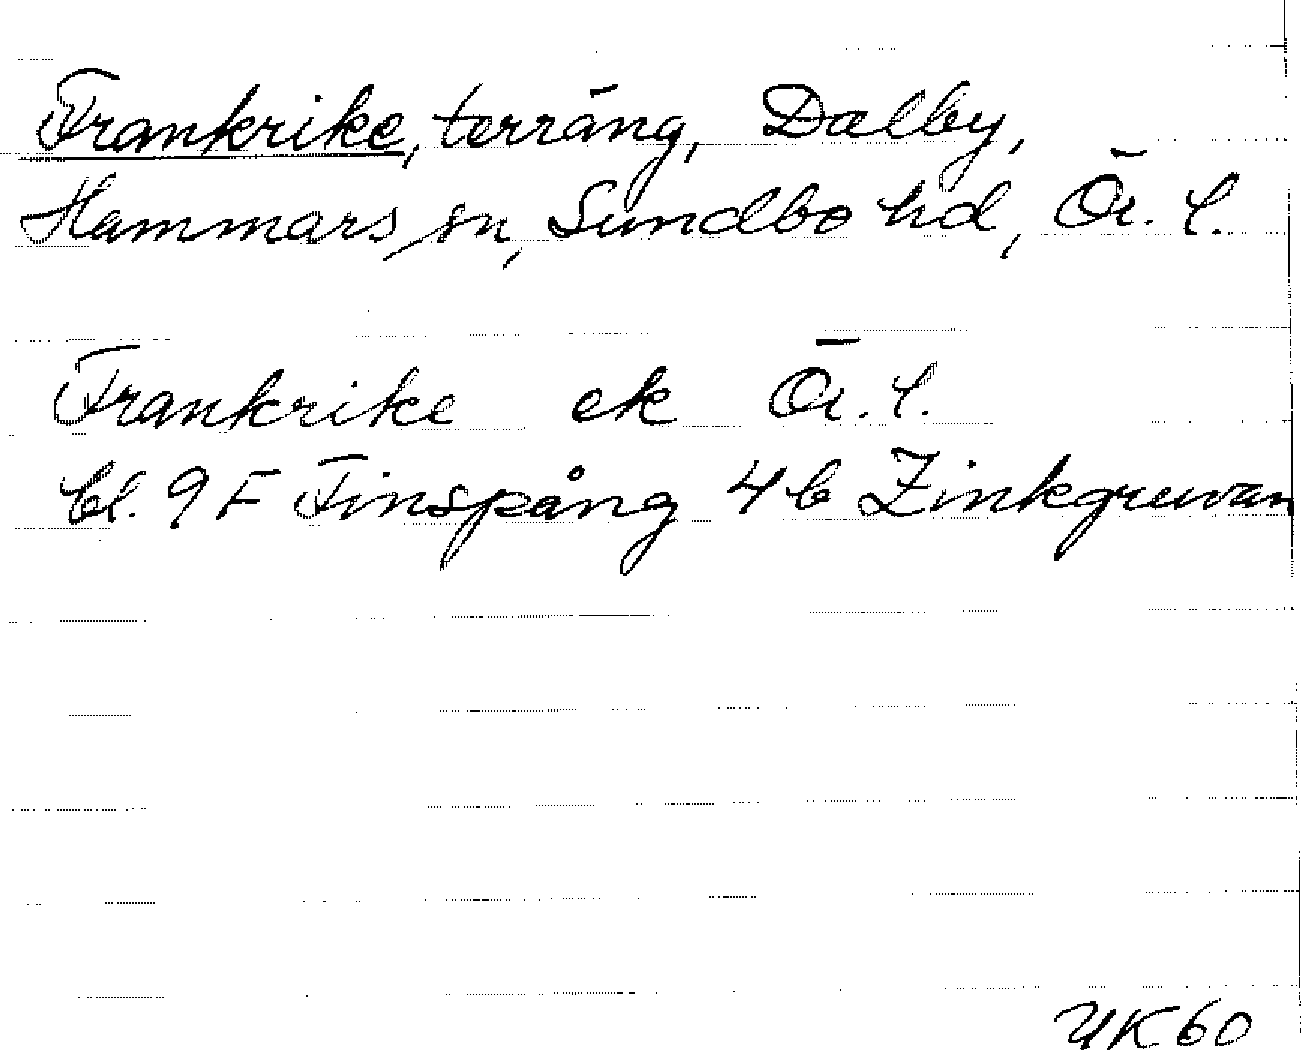 Frankrike, terräng, Dalby,
Hammars sn, Sundbo hd, Ör. l.
Frankrike ek Ör. l.
bl. 9 F Finspång 4 b Zinkgruvan
UK 60